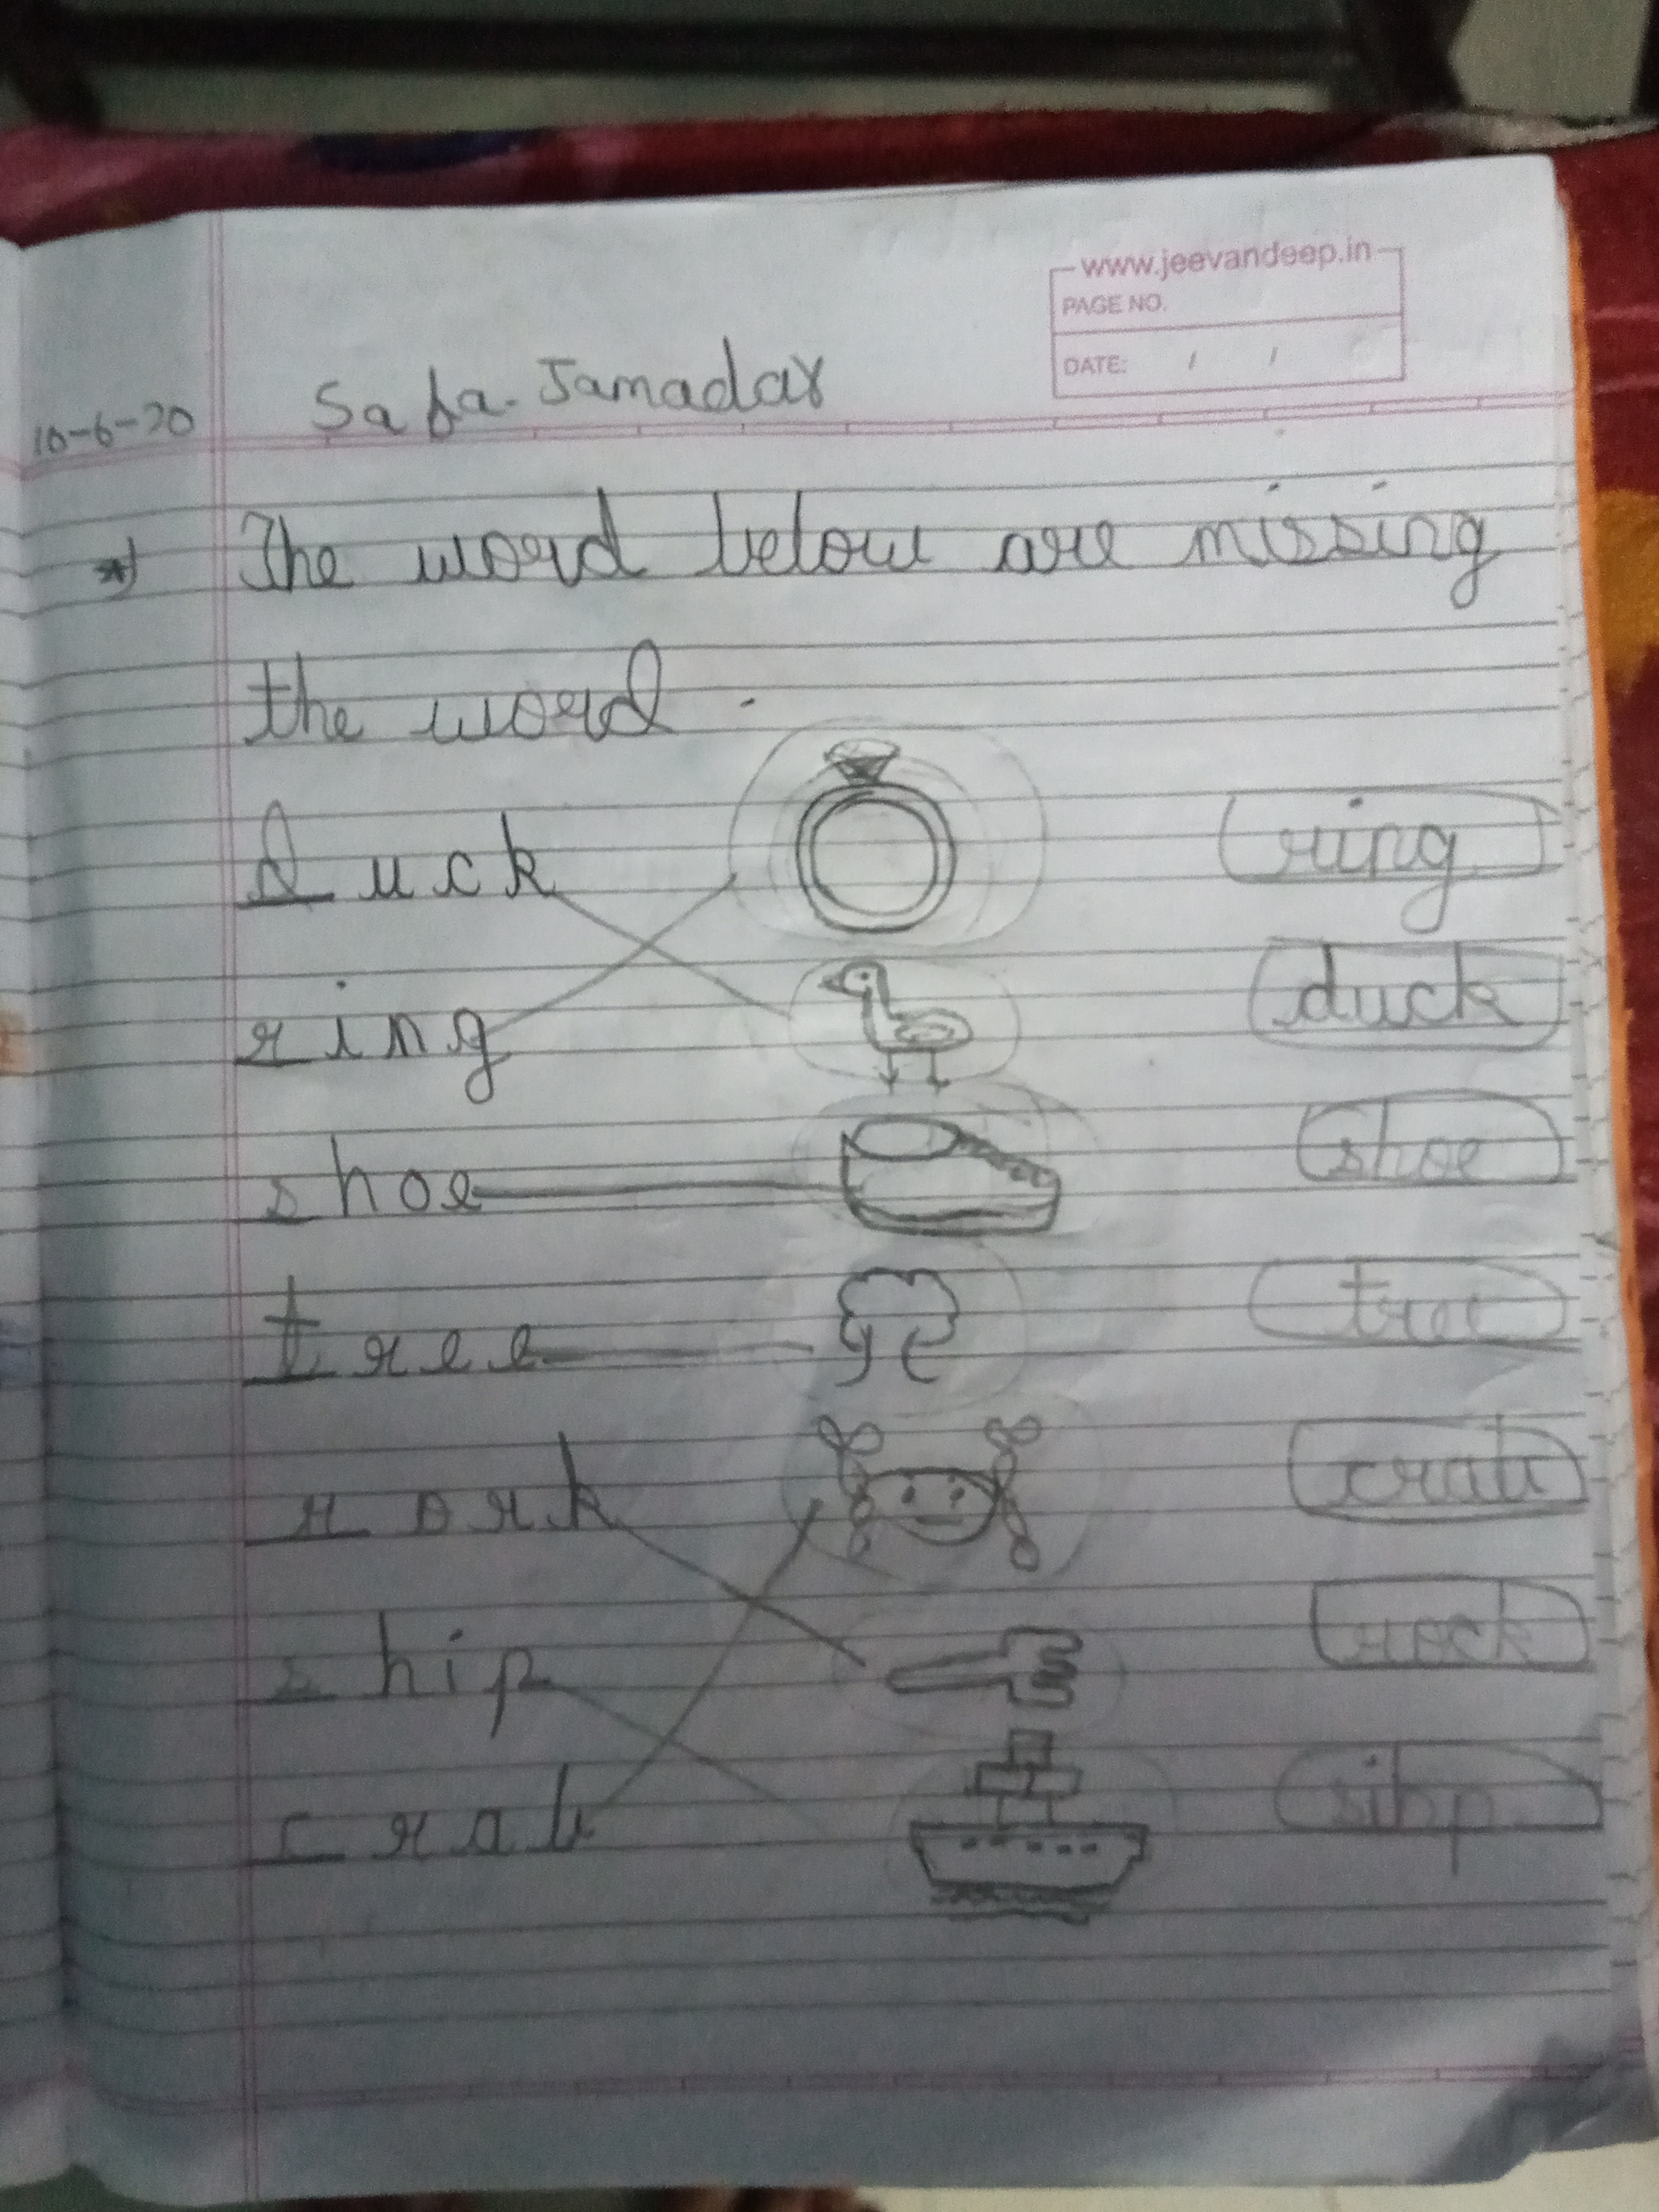 www.jeevandeep.in
PAGE NO.
DATE: / /
10-6-20 Safa. Jamadar
*) The word below are missing
the word.
duck ring
ring duck
shoe shoe
tree tree
rork crab
ship rock
crab sihp